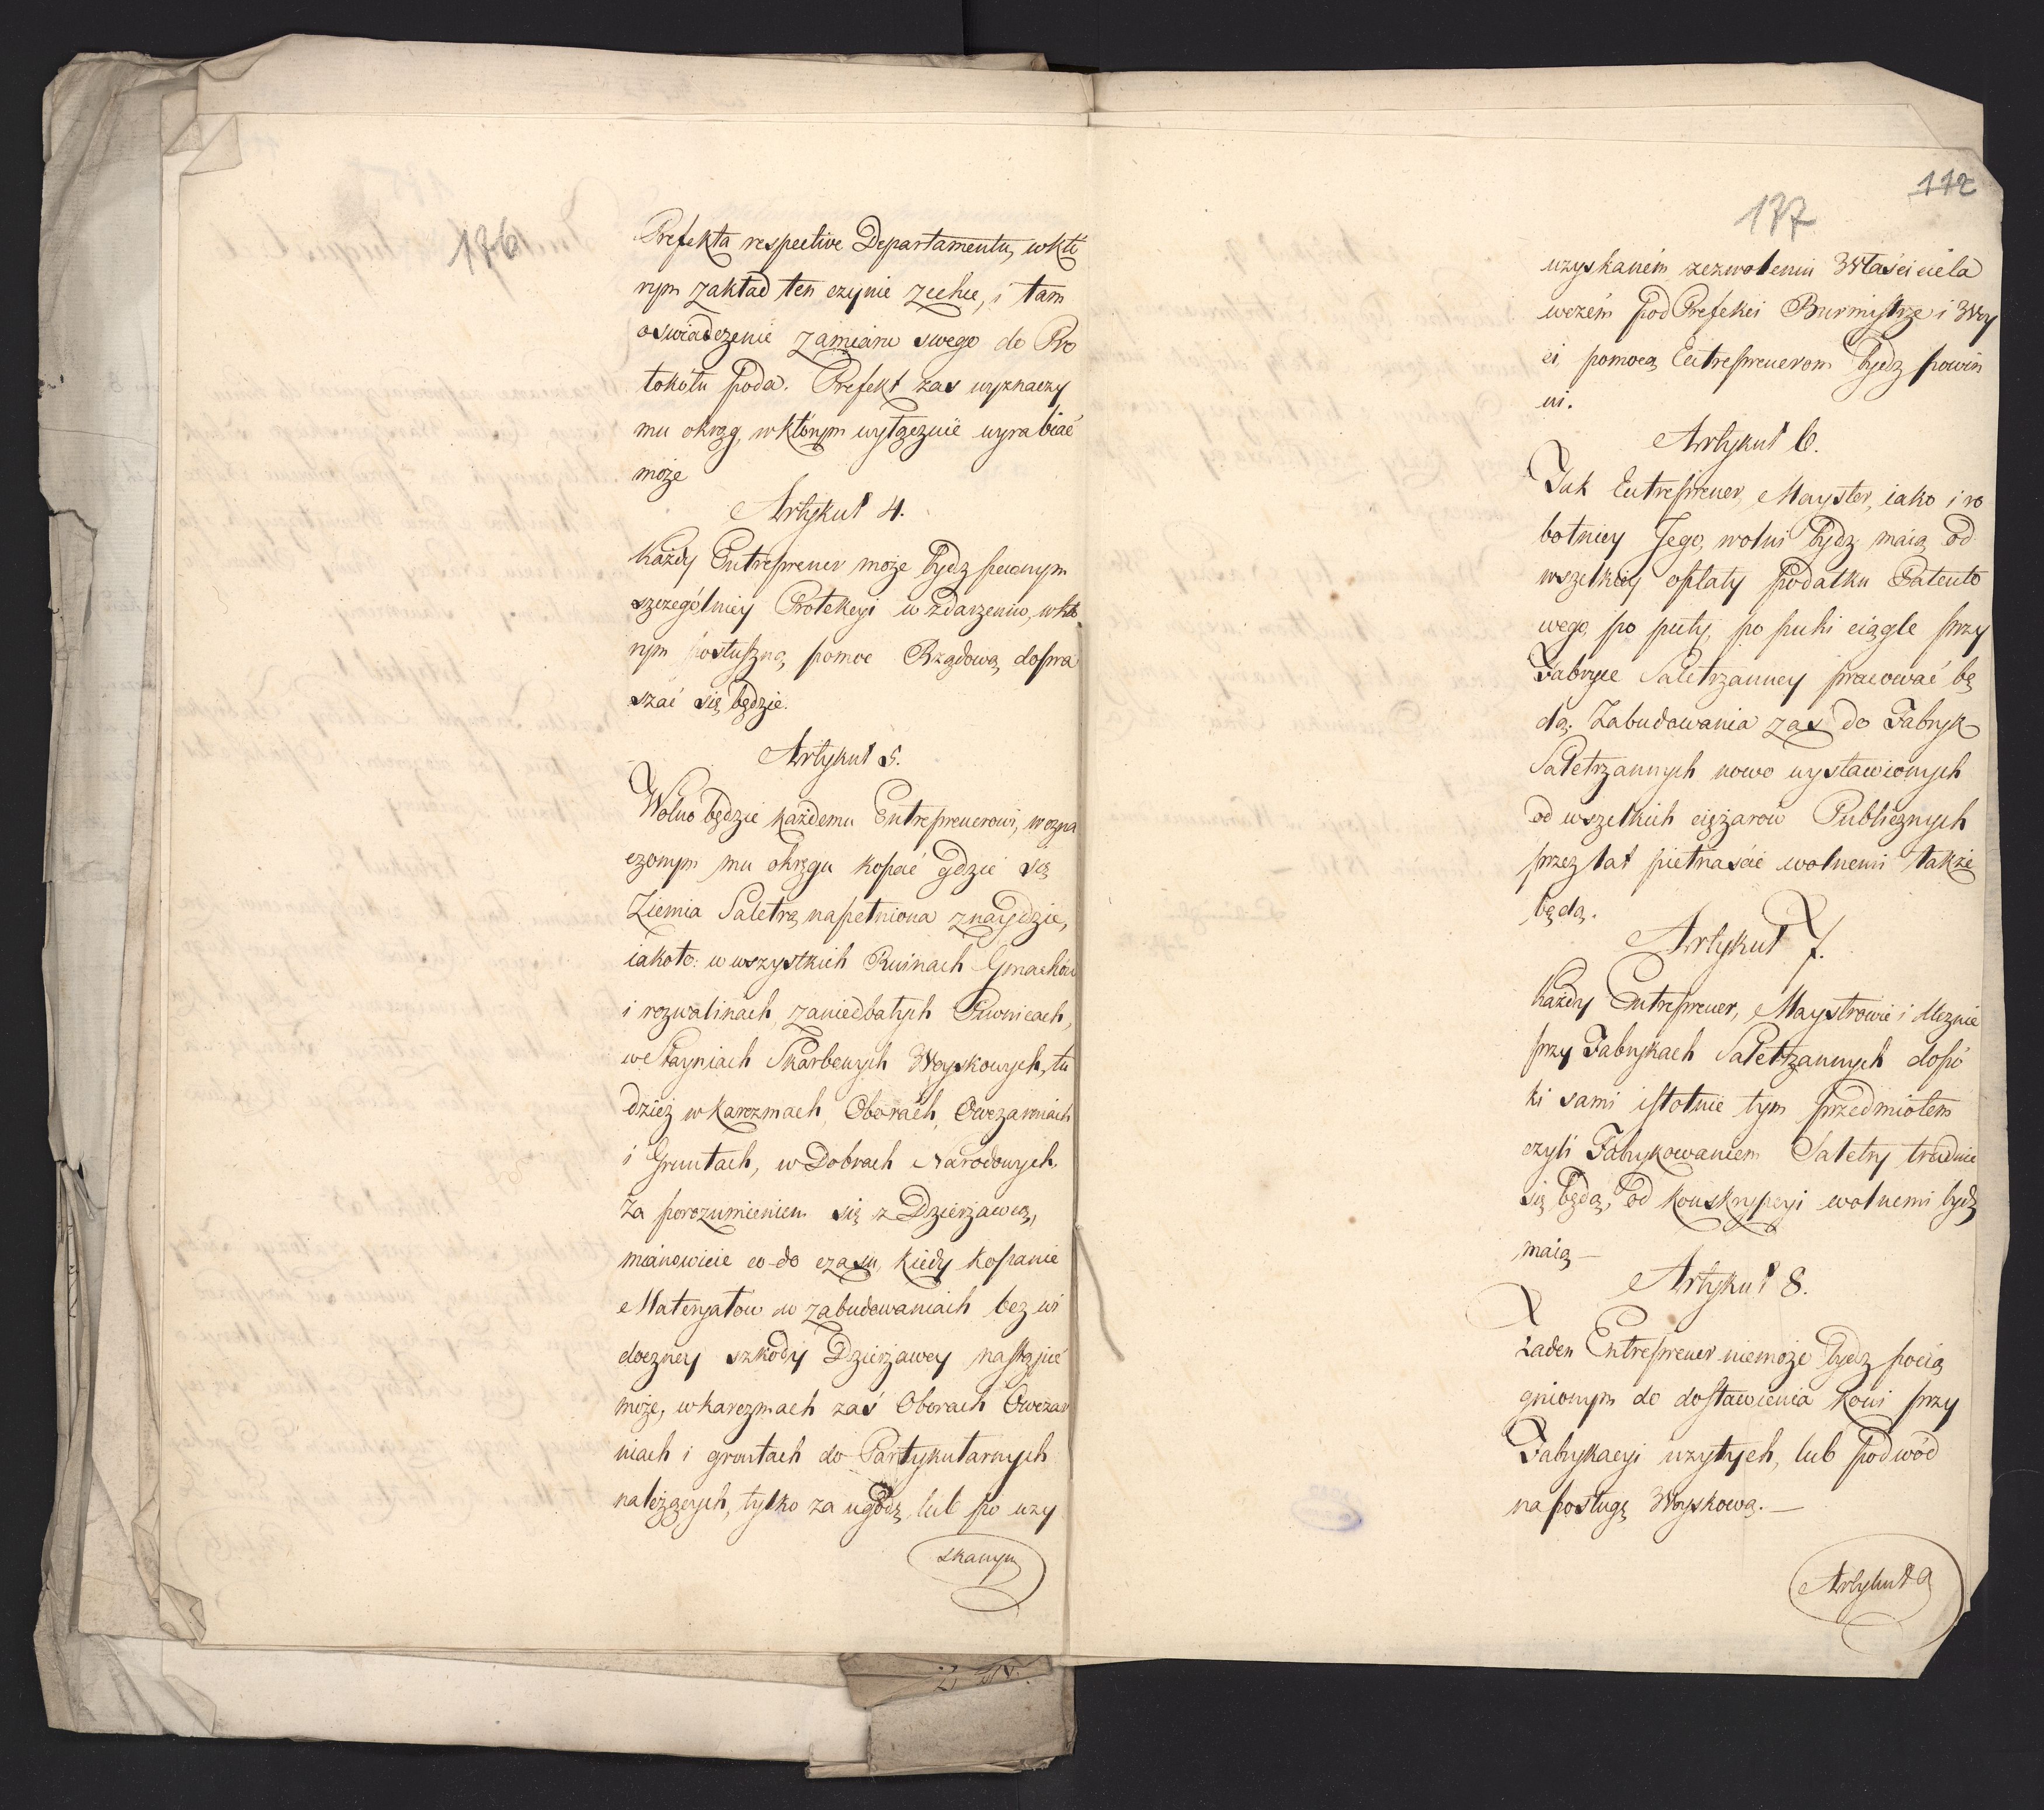 176
Prefekta respective Departamentu, wktó
rym zakład ten czynić zechce, i tam
oswiadczenie zamiaru swego do Pro
tokółu poda. Prefekt zas wyznaczy
mu okrąg, wktórym wyłącznie wyrabiać
może
Artykuł 4.
Każdy Entreprener może bydz pewnym
szczególniey Protekcyi w zdarzeniu, wktó
rym posłuszną, pomoc Rządową, dopra
szać się będzie.
Artykuł 5.
Wolno będzie każdemu Entreprenerowi, wozna
czonym mu okręgu kopać gdzie się
Ziemia Saletrą napełniona znaydzie,
iakoto: w wszystkich Ruinach Gmachów
i rozwalinach, zaniedbałych Piwnicach,
we Stayniach Skarbowych Woyskowych, tu
dzież w karczmach, Oborach, Owczarniach
i Gruntach, w Dobrach Narodowych,
za porozumieniem się z Dzierżawcą,
mianowicie co do czasu, kiedy kopanie
Materyałów w zabudowaniach bez wi
doczney szkody Dzierżawcy nastąpić
może, w karczmach zaś Oborach Owczar
niach i gruntach do Partykularnych
należących, tylko za ugodą, lub po uzy
skanym
112
177
uzyskaném zezwoleniu Właściciela
wczém Pod Prefekci Burmistrze i Woy
ci, pomocą Entreprenerom bydz powin
ni.
Artykuł 6.
Tak Entreprener, Mayster, iako i ro
botnicy Jego, wolni bydz maią od
wszelkiey opłaty Podatku Patento
wego, po puty, po puki ciągle przy
Fabryce Saletrzanney pracować bę
dą; Zabudowania zas do Fabryk
Saletrzannych nowo wystawionych
od wszelkich ciężarow Publicznych
przez lat pietnascie wolnemi także
będą.
Artykuł 7.
Każdy Entreprener, Maystrowie i Ucznie
przy Fabrykach Saletrzannych dopó
ki sami istotnie tym przedmiotem
czyli Fabrykowaniem Saletry trudnić
się będą, od konskrypcyi wolnemi bydź
maią —
Artykuł 8.
Żaden Entreprener niemoże bydz pocią
gnionym do dostawienia koni przy
Fabrykacyi uzytych, lub Podwód
na posługę Woyskową. —
Artykuł 9